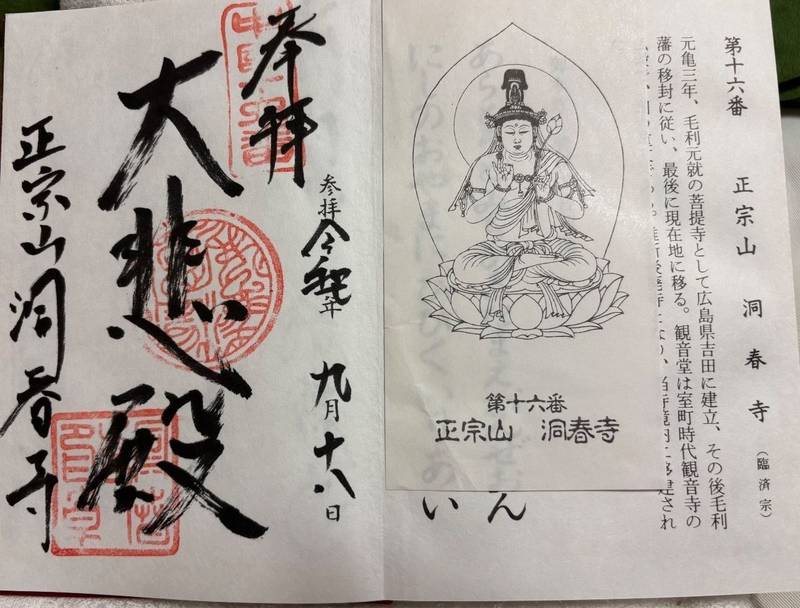 第十六番 正宗山 洞春寺 (臨済宗)
元亀三年、毛利元就の菩提寺として広島県吉田に建立、その後毛利
藩の移封に従い、最後に現在地に移る。観音堂は室町時代観音寺の
第十六番
正宗山 洞春寺
ん
い
奉拝
参拝 令和 年 九月十八日
大悲殿
正宗山洞春寺